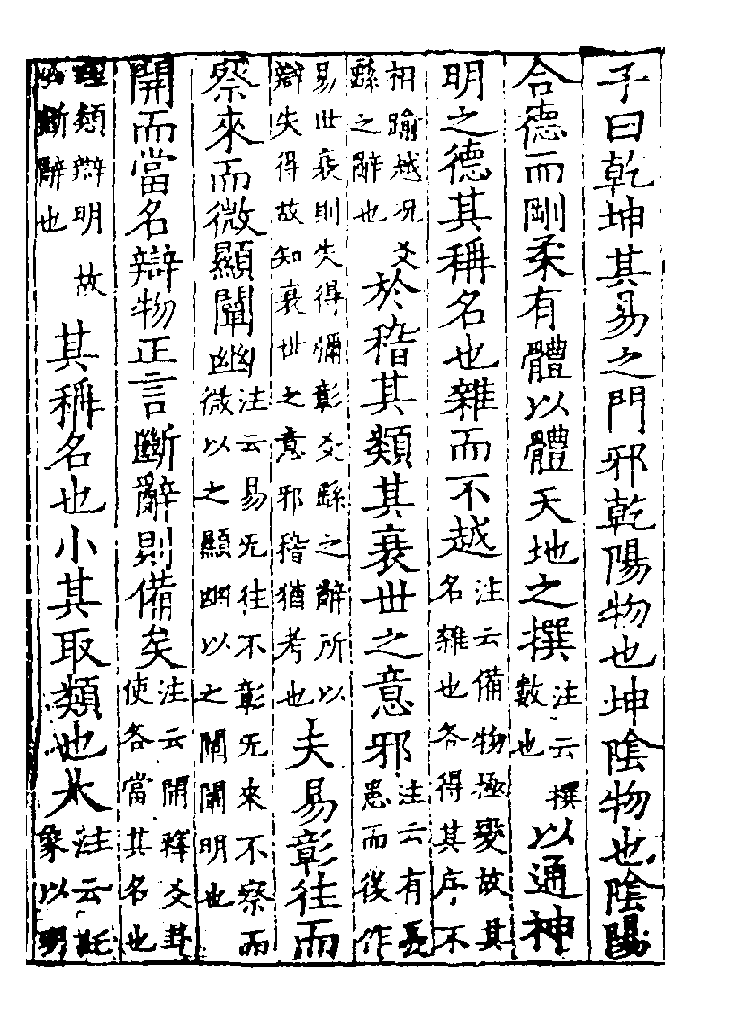 子曰乾坤其易之門邪乾陽物也坤陰物也陰陽
合德而剛柔有體以體天地之撰注云撰數也以通神
明之德其稱名也雜而不越注云備物極變故其名雜也各得其序不
相踰越況爻繇之辭也於稽其類其衰世之意邪注云有憂患而後作
易世衰則失得彌彰爻繇之辭所以辯失得故知衰世之意邪稽猶考也夫易彰往而
察來而微顯闡幽注云易无往不彰无來不察而微以之顯幽以之闡闡明也
開而當名辯物正言斷辭則備矣注云開釋爻卦使各當其名也
理類辯明故曰斷辭也其稱名也小其取類也大注云託象以明